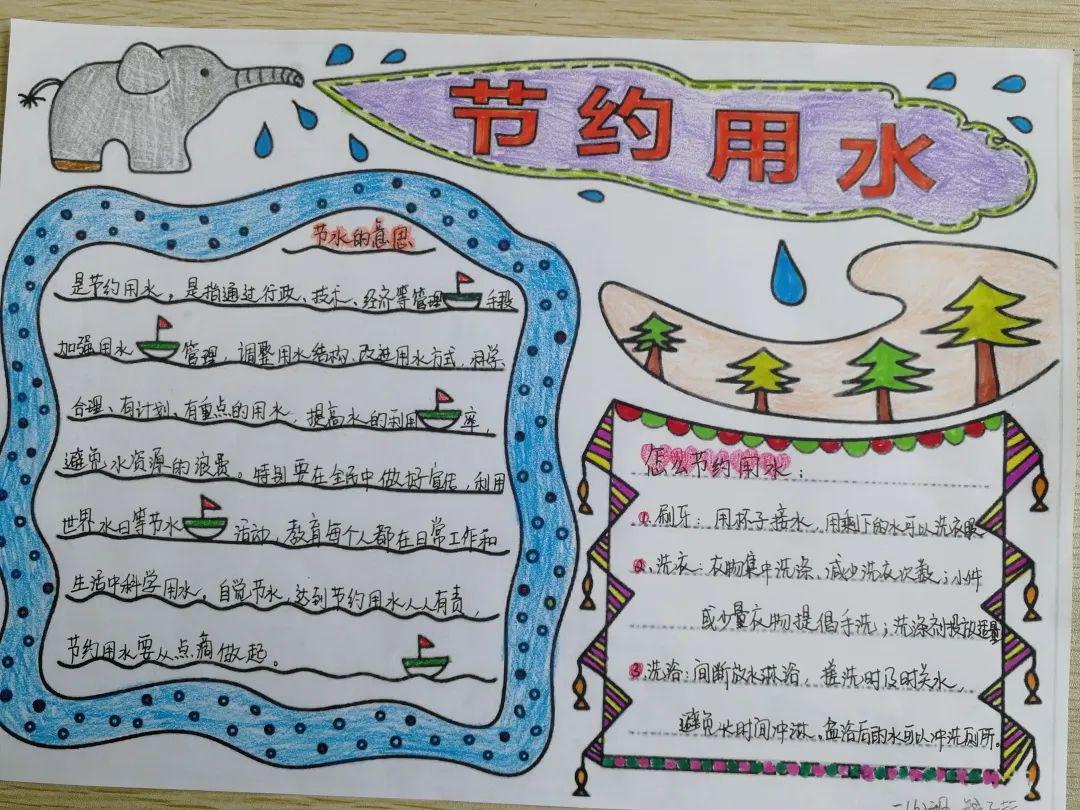 节约用水
节水的意思
是节约用水，是指通过行政、技术、经济等管理手段
加强用水管理，调整用水结构，改进用水方式，科学
合理、有计划、有重点的用水，提高水的利用率，
避免水资源的浪费。特别要在全民中做好宣传，利用
世界水日等节水活动，教育每个人都在日常工作和
生活中科学用水，自觉节水，达到节约用水人人有责，
节约用水要从点滴做起。
怎么节约用水：
1.刷牙：用杯子接水，用剩下的水可以洗衣服
2、洗衣：衣物集中洗涤、减少洗衣次数；小件
或少量衣物提倡手洗；洗涤剂投放适量
3.洗浴：间断放水淋浴，搓洗时及时关水，
避免长时间冲淋。盆浴后的水可以冲洗厕所。